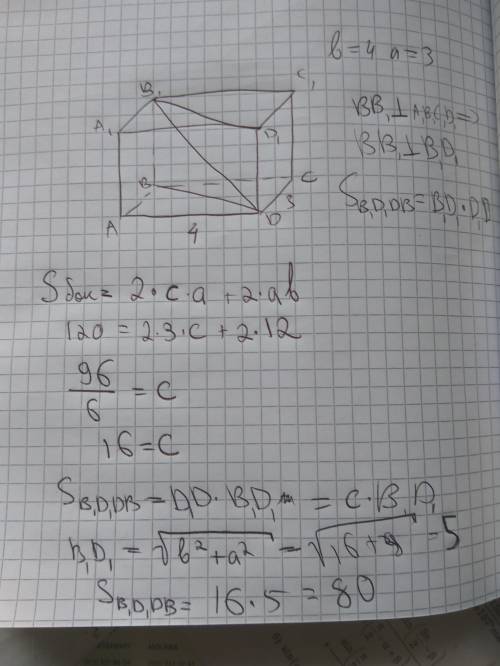 b=4 a=3
C₁
B₁
A₁
D₁
BB₁⊥A₁B₁C₁D₁=>
BB₁⊥B₁D₁
B
C
S B₁D₁DB=B₁D₁·D₁D
3
A
D
4
Sбок= 2·c·a +2·ab
120 = 2·3·c+2·12
96/6 = c
16=c
S B₁D₁DB = D₁D·B₁D₁ = c·B₁D₁
B₁D₁ = √b²+a² = √16+9 = 5
S B₁D₁DB= 16·5 = 80